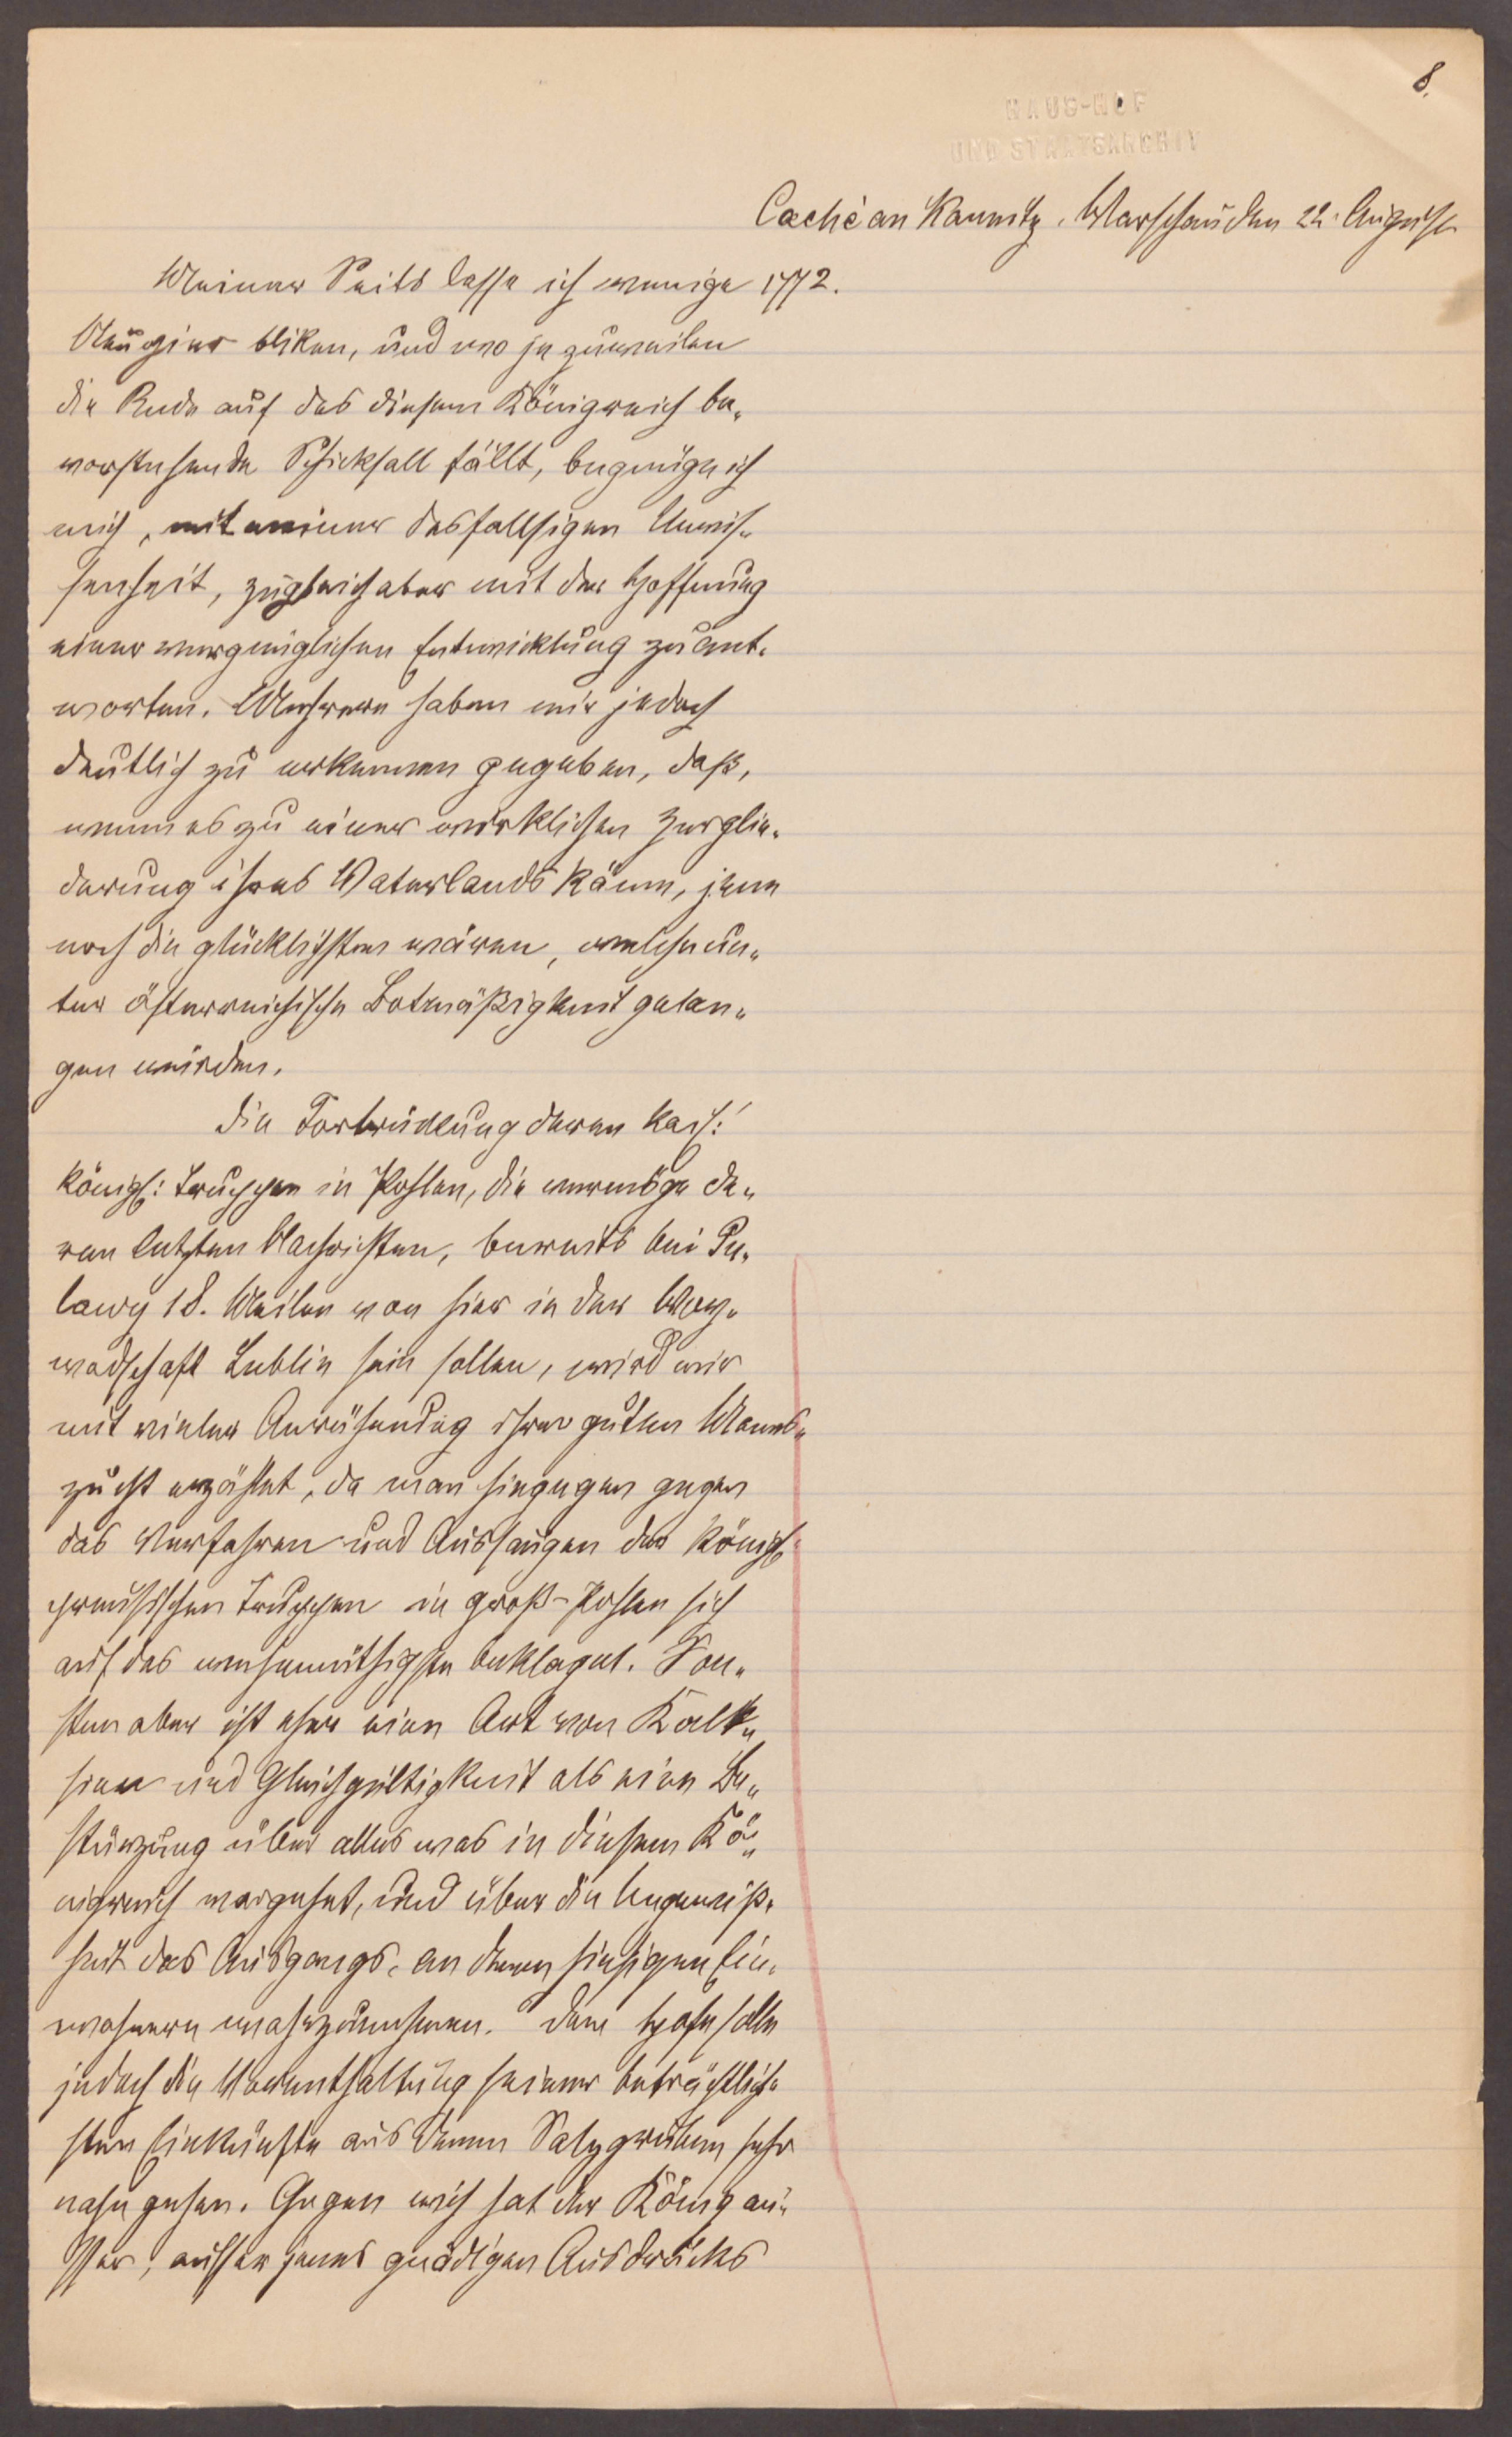 8.
HAUS-HOF
UND STAATSARCHIV
Caché an Kaunitz. Warschau den 22. August
Meiner Seits lasse ich wenige 1772.
Neugier bliken, und wo je zuweilen
die Rede auf das diesem Königreich be„
vorstehende Schicksall fällt, begnüge ich
mich, mit meiner desfallsigen Unwis„
senheit, zugleich aber mit der Hoffnung
einer vergnüglichen Entwicklung zu ant„
worten. Mehrere haben mir jedoch
deutlich zu erkennen gegeben, daß,
wenn es zu einer wirklichen Zerglie„
derung ihres Vaterlands käme, jene
noch die glücklichsten wären, welche un„
ter österreichische Botmäßigkeit gelan„
gen würden.
Die Fortrückung deren kais:
königl: Truppen in Pohlen, die vermöge de„
ren letzten Nachrichten, bereits bei Pu„
lawy 18. Meilen von hier in der Woy„
wodschaft Lublin sein sollen, wird mir
mit vieler Anrühmung ihrer guten Manns„
zucht erzählet, da man hingegen gegen
das Verfahren und Aussaugen der königl:
preussischen Truppen in groß-Pohlen sich
auf das wehemüthigste beklaget. Son„
sten aber ist eher eine Art von Kalt„
sinn und Gleichgültigkeit als eine Be„
stürzung über alles was in diesem Kö„
nigreich vorgehet, und über die Ungewiß„
heit des Ausgangs, an denen hiesigen Ein„
wohnern wahrzunehmen. Dem Hofe solle
jedoch die Vorenthaltung seiner beträchtlich„
sten Einkünfte aus denen Salzgruben sehr
nahe gehen. Gegen mich hat der König au„
sser, ausser jenes gnädigen Ausdrucks